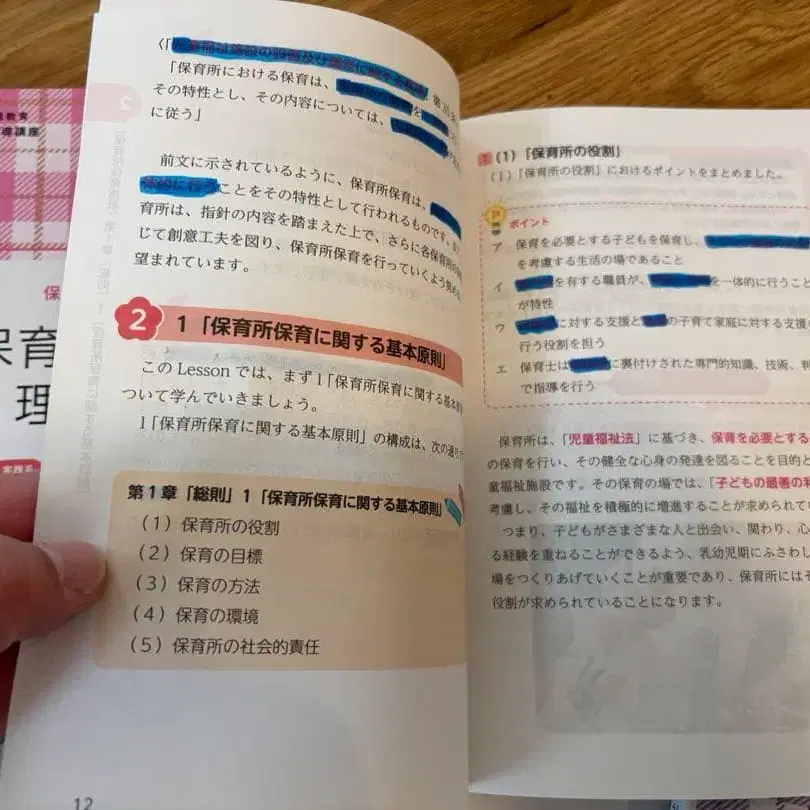 〈「児童福祉施設の設備及び運営に関する基準」第35条
「保育所における保育は、
その特性とし、その内容については、
に従う」
前文に示されているように、保育所保育は、
体的に行うことをその特性として行われるものです。
育所は、指針の内容を踏まえた上で、さらに各保育所の
じて創意工夫を図り、保育所保育を行っていくよう努め
望まれています。
2 1「保育所保育に関する基本原則」
このLessonでは、まず1「保育所保育に関する基本原則
ついて学んでいきましょう。
1「保育所保育に関する基本原則」の構成は、次の通り
第1章「総則」1「保育所保育に関する基本原則」
(1)保育所の役割
(2)保育の目標
(3)保育の方法
(4)保育の環境
(5)保育所の社会的責任
12
(1)「保育所の役割」
(1)「保育所の役割」におけるポイントをまとめました。
ポイント
ア 保育を必要とする子どもを保育し、
を考慮する生活の場であること
イ を有する職員が、を一体的に行うこと
が特性
ウ に対する支援との子育て家庭に対する支援
行う役割を担う
エ 保育士はに裏付けされた専門的知識、技術、判
で指導を行う
保育所は、「児童福祉法」に基づき、保育を必要とする
の保育を行い、その健全な心身の発達を図ることを目的と
童福祉施設です。その保育の場では、「子どもの最善の利
考慮し、その福祉を積極的に増進することが求められてい
つまり、子どもがさまざまな人と出会い、関わり、心
る経験を重ねることができるよう、乳幼児期にふさわし
場をつくりあげていくことが重要であり、保育所にはそ
役割が求められていることになります。
教育
導講座
保
保育
理
実践系